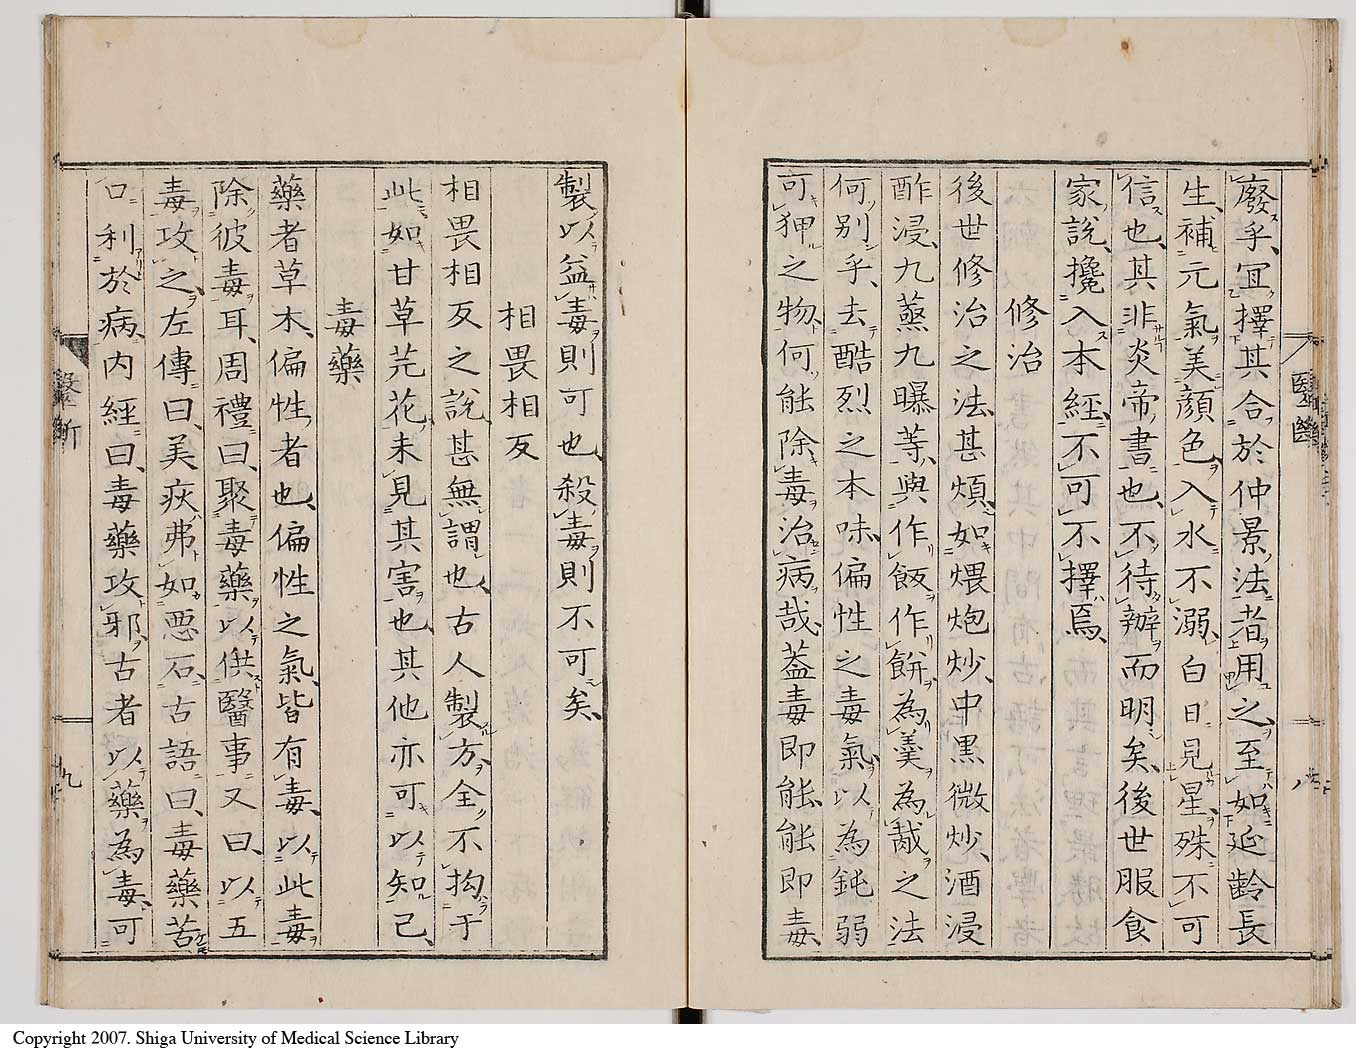 廢乎、宜擇其合於仲景法者用之、至如延齡長
生、補元氣美顏色、入水不溺、白日見星、殊不可
信也、其非炎帝書也、不待辦而明矣、後世服食
家說、攙入本經、不可不擇焉、
修治
後世修治之法、甚煩、如煨炮炒、中黑微炒、酒浸
酢浸、九蒸九曝等、與作飯作餅、為羹為胾之法
何別乎、去酷烈之本味、偏性之毒氣、以為鈍弱
可狎之物、何能除毒治病哉、蓋毒即能、能即毒、
製以益毒則可也、殺毒則不可矣、
相畏相反
相畏相反之說、甚無謂也、古人製方、全不拘于
此、如甘草芫花、未見其害也、其他亦可以知已、
毒藥
藥者草木、偏性者也、偏性之氣、皆有毒、以此毒
除彼毒耳、周禮曰、聚毒藥以供醫事、又曰、以五
毒攻之、左傳曰、美疢弗如惡石、古語曰、毒藥苦
口利於病、內經曰、毒藥攻邪、古者以藥為毒、可
醫斷
九
Copyright 2007. Shiga University of Medical Science Library